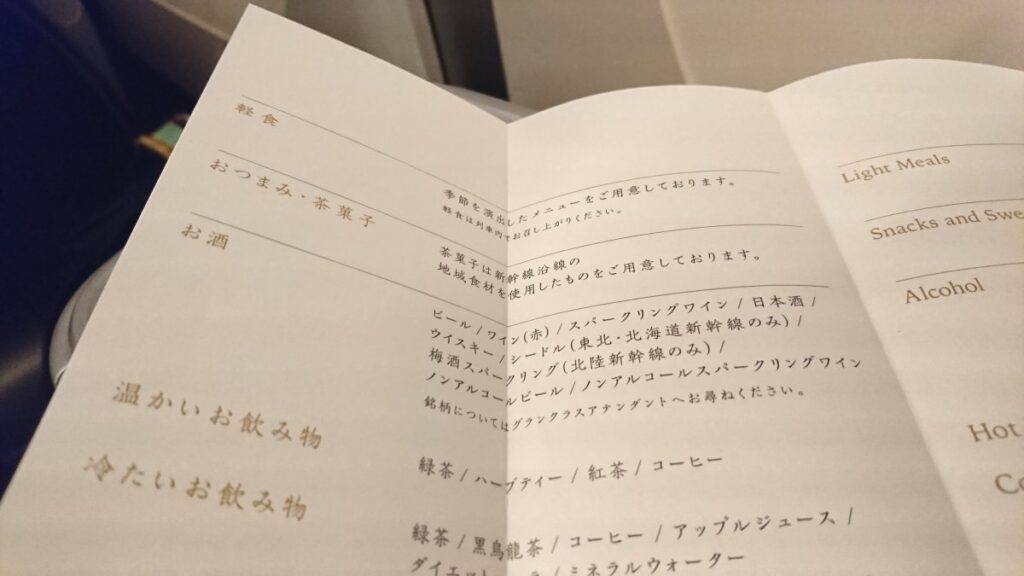 軽食
季節を演出したメニューをご用意しております。
軽食は列車内でお召し上がりください。
おつまみ・茶菓子
茶菓子は新幹線沿線の
地域食材を使用したものをご用意しております。
お酒
ビール / ワイン(赤) / スパークリングワイン / 日本酒 /
ウイスキー / シードル(東北・北海道新幹線のみ) /
梅酒スパークリング(北陸新幹線のみ) /
ノンアルコールビール / ノンアルコールスパークリングワイン
銘柄についてはグランクラスアテンダントへお尋ねください。
温かいお飲み物
緑茶 / ハーブティー / 紅茶 / コーヒー
冷たいお飲み物
緑茶 / 黒烏龍茶 / コーヒー / アップルジュース /
ダイエット ラ / ミネラルウォーター
Light Meals
Snacks and Swe
Alcohol
Hot
Co